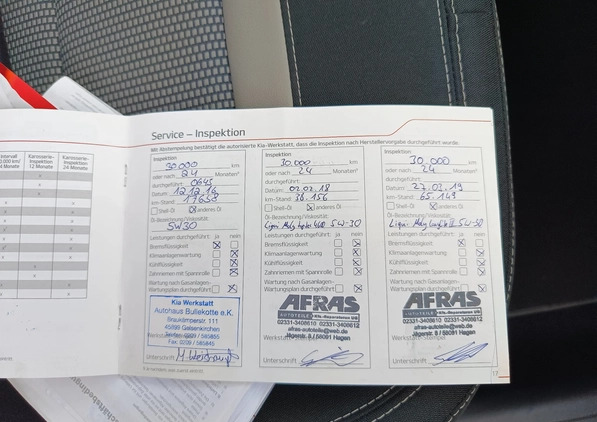 Service – Inspektion
Mit Abstempelung bestätigt die autorisierte Kia-Werkstatt, dass die Inspektion nach Herstellervorgabe durchgeführt wurde.
Intervall
Karosserie-
Inspektion
12 Monate
Karosserie-
Inspektion
24 Monate
Inspektion
30.000 km
oder nach 24 Monaten
durchgeführt:
Datum: 12.12.16
km-Stand: 17658
Shell-Öl anderes Öl
Öl-Bezeichnung/Viskosität:
5W30
Leistungen durchgeführt: ja nein
Bremsflüssigkeit
Klimaanlagenwartung
Kühlflüssigkeit
Zahnriemen mit Spannrolle
Wartung nach Gasanlagen-
Wartungsplan durchgeführt
Kia Werkstatt
Autohaus Bullekotte e.K.
Braukämperstr. 111
45899 Gelsenkirchen
Telefon 0209 / 565855
Fax: 0209 / 565845
Unterschrift
Inspektion
30.000 km
oder nach 24 Monaten
durchgeführt:
Datum: 02.02.18
km-Stand: 36.156
Shell-Öl anderes Öl
Öl-Bezeichnung/Viskosität:
5W-30
Leistungen durchgeführt: ja nein
Bremsflüssigkeit
Klimaanlagenwartung
Kühlflüssigkeit
Zahnriemen mit Spannrolle
Wartung nach Gasanlagen-
Wartungsplan durchgeführt
AFRAS
AUTOTEILE Kfz.-Reparaturen UG
02331-3408610 02331-3408612
afras-autoteile@web.de
Jägerstr. 8 / 58091 Hagen
Unterschrift
Inspektion
30.000 km
oder nach 24 Monaten
durchgeführt:
Datum: 27.03.19
km-Stand: 65.149
Shell-Öl anderes Öl
Öl-Bezeichnung/Viskosität:
Leistungen durchgeführt: ja nein
Bremsflüssigkeit
Klimaanlagenwartung
Kühlflüssigkeit
Zahnriemen mit Spannrolle
Wartung nach Gasanlagen-
Wartungsplan durchgeführt
AFRAS
AUTOTEILE Kfz.-Reparaturen UG
02331-3408610 02331-3408612
afras-autoteile@web.de
Jägerstr. 8 / 58091 Hagen
Unterschrift
17